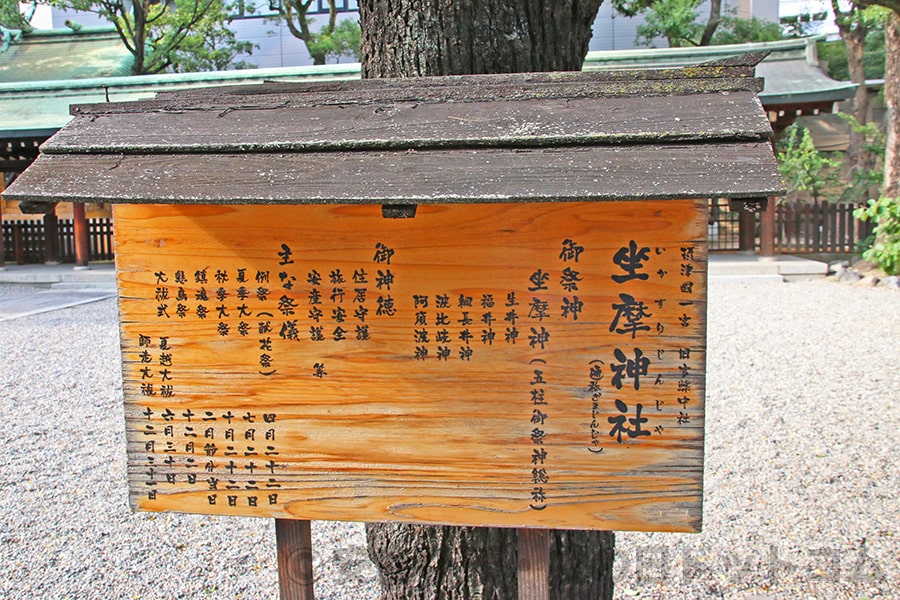 摂津國一宮 旧官幣中社
いかすりじんじゃ
坐摩神社
(通称ざまじんじゃ)
御祭神
坐摩神(五柱御祭神総称)
生井神
福井神
綱長井神
波比岐神
阿須波神
御神徳
住居守護
旅行安全
安産守護 等
主な祭儀
例祭(献花祭) 四月二十二日
夏季大祭 七月二十二日
秋季大祭 十月二十二日
鎮魂祭 二月節分当日
繭鳥祭 十二月二日
大祓式 夏越大祓 六月三十日
師走大祓 十二月三十一日